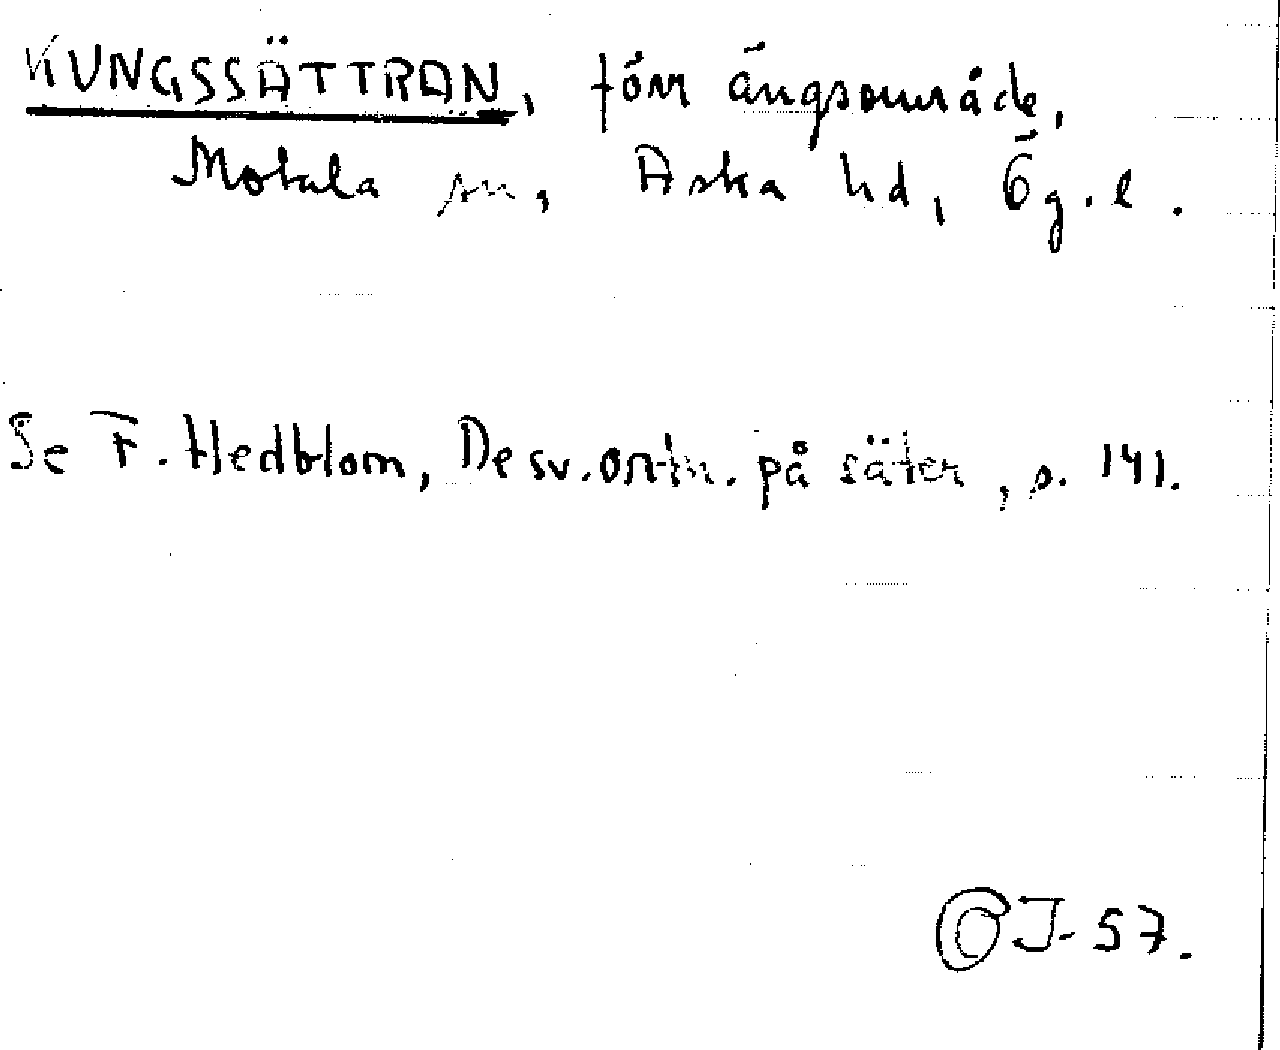 KUNGSSÄTTRAN, förr ängsområde,
Motala sn, Aska hd, Ög. l.
Se F. Hedblom, De sv. ortn. på säter, s. 141.
CJ-57.